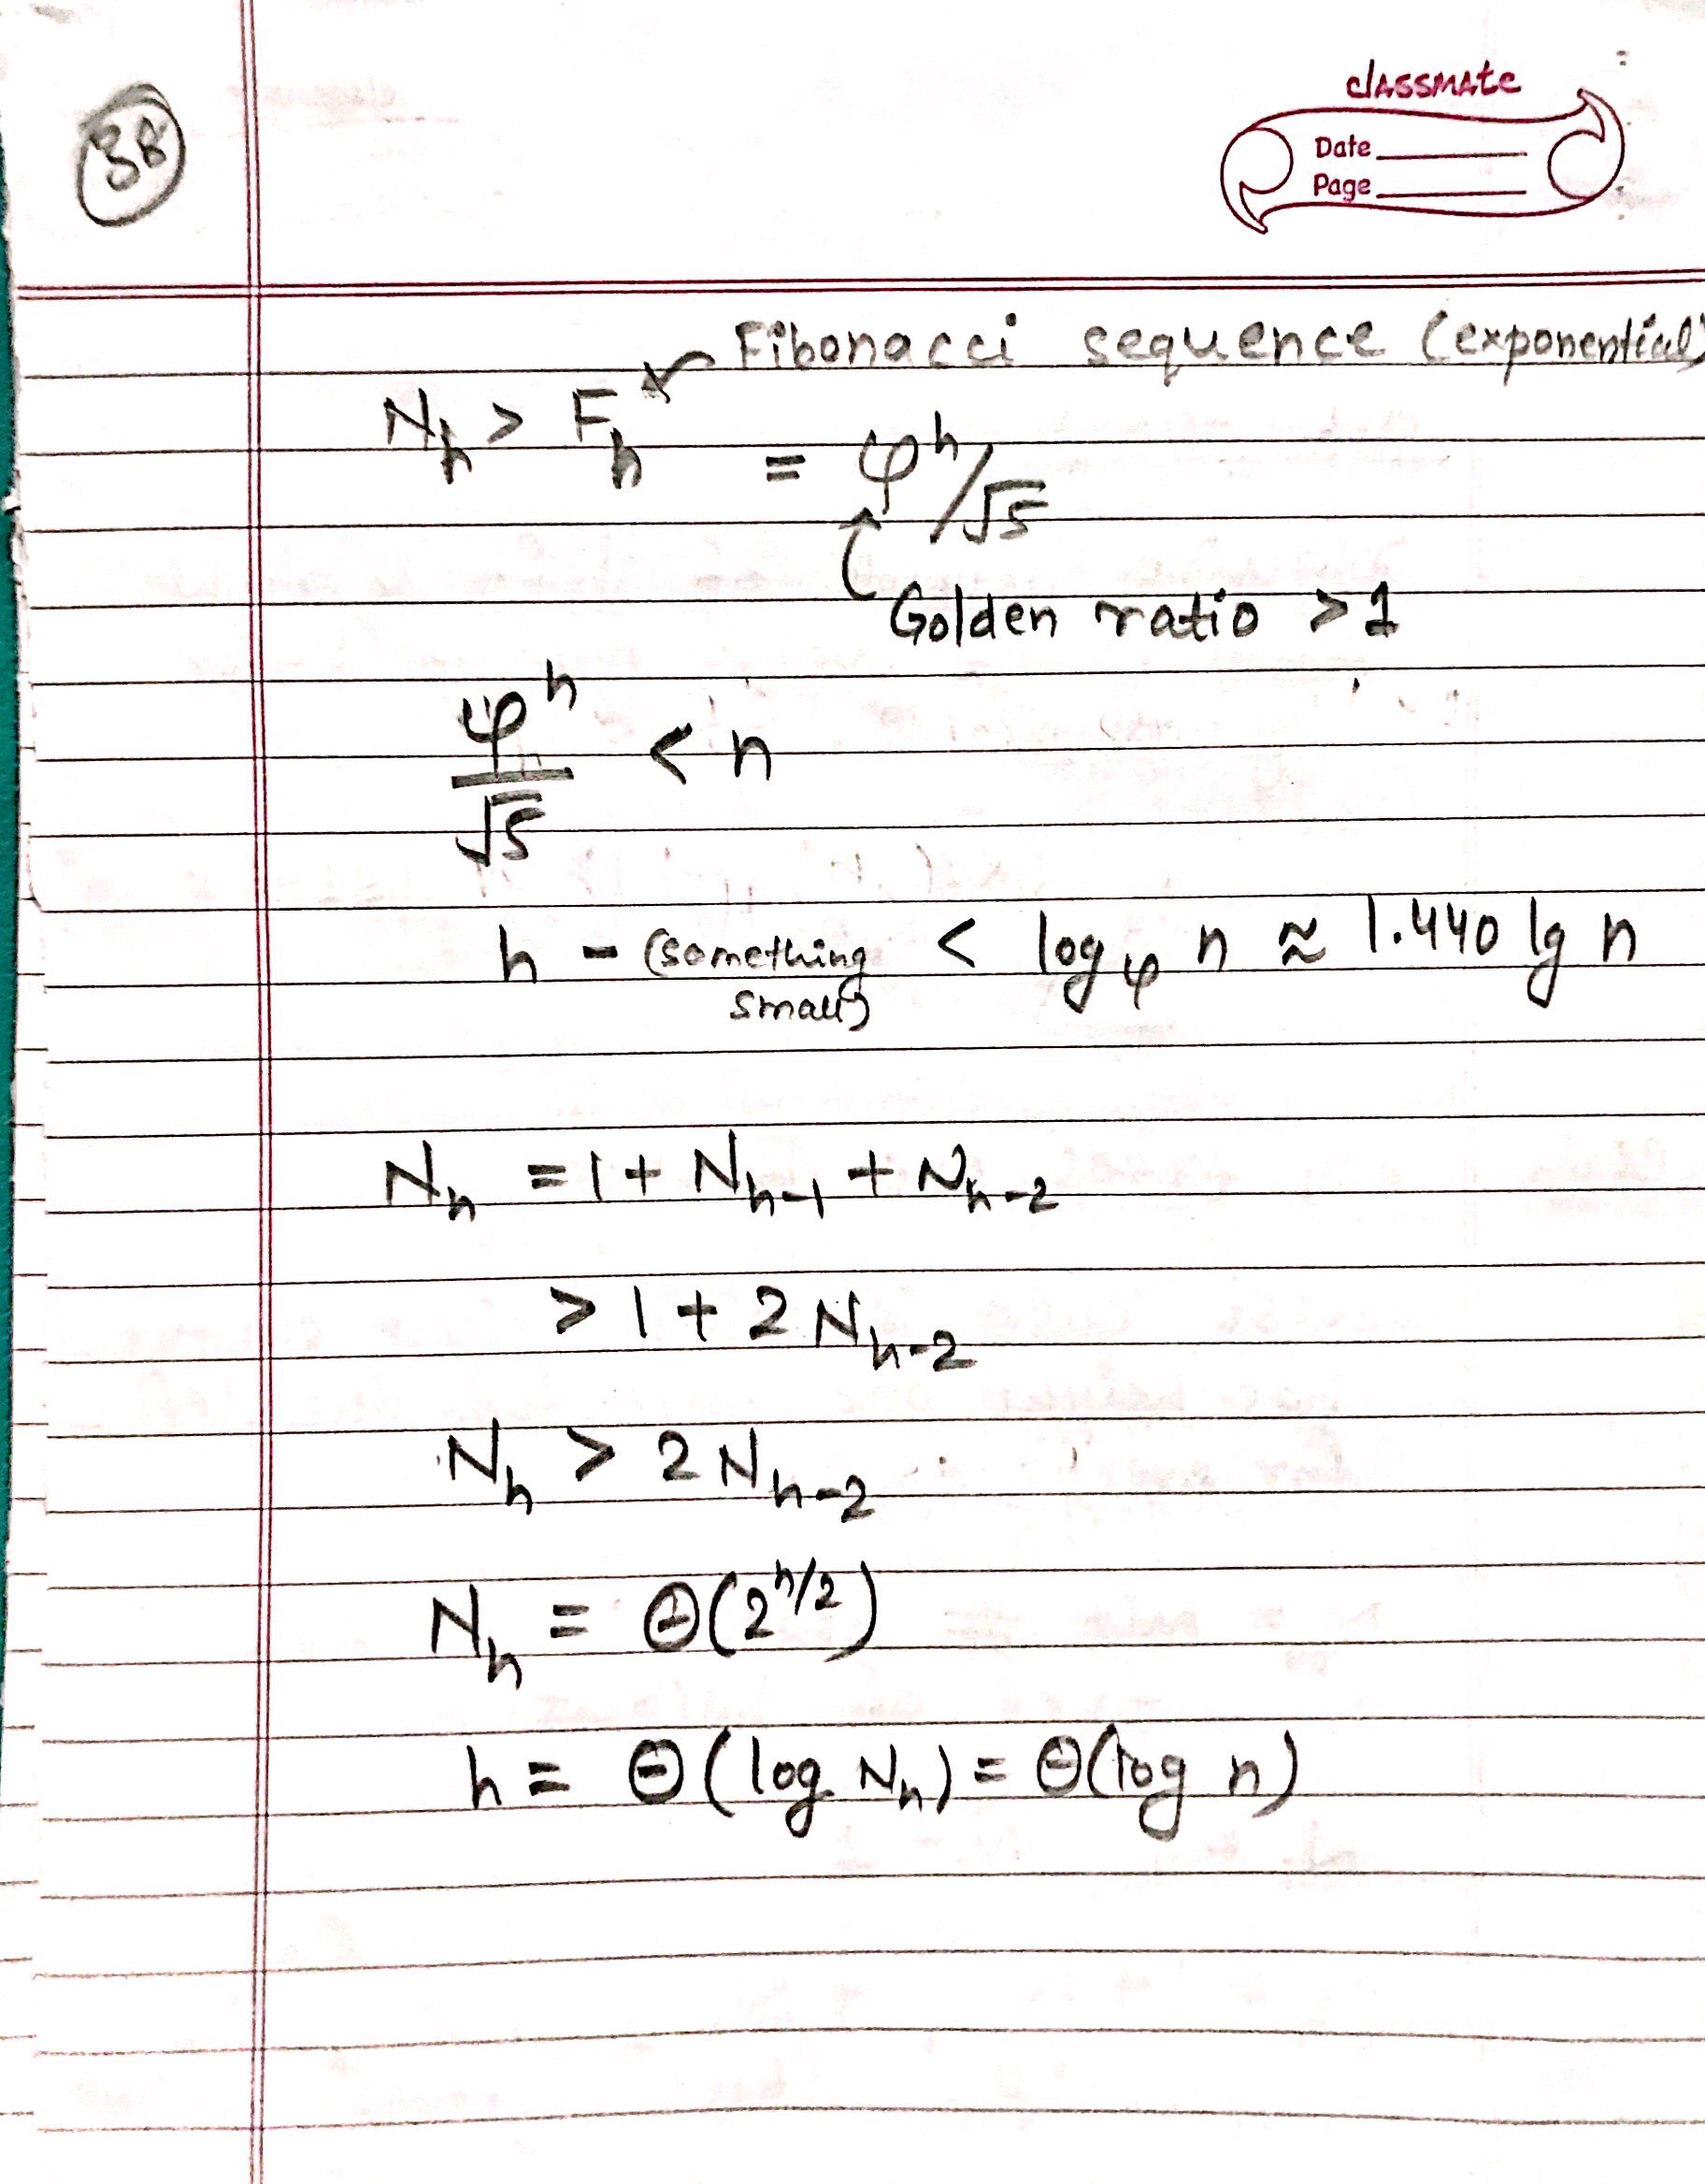 38
classmate
Date
Page
Fibonacci sequence (exponential)
N_h > F_h = φ^h/√5
Golden ratio > 1
φ^h/√5 < n
h - (something small) < log_φ n ≈ 1.440 lg n
N_h = 1 + N_h-1 + N_h-2
> 1 + 2 N_h-2
N_h > 2 N_h-2
N_h = Θ(2^h/2)
h = Θ(log N_h) = Θ(log n)